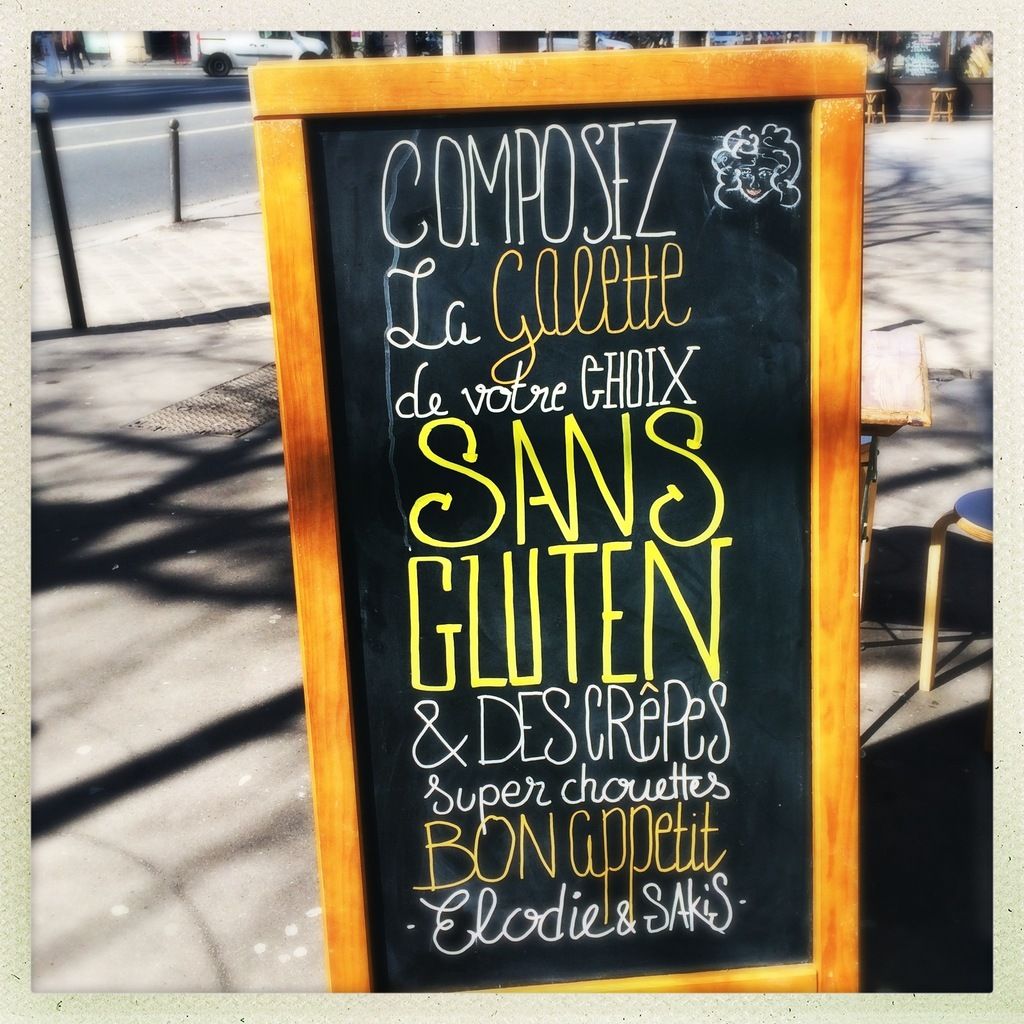 COMPOSEZ
La galette
de votre CHOIX
SANS
GLUTEN
& DES CRÊPES
super chouettes
BON appetit
· Elodie & SAKiS ·